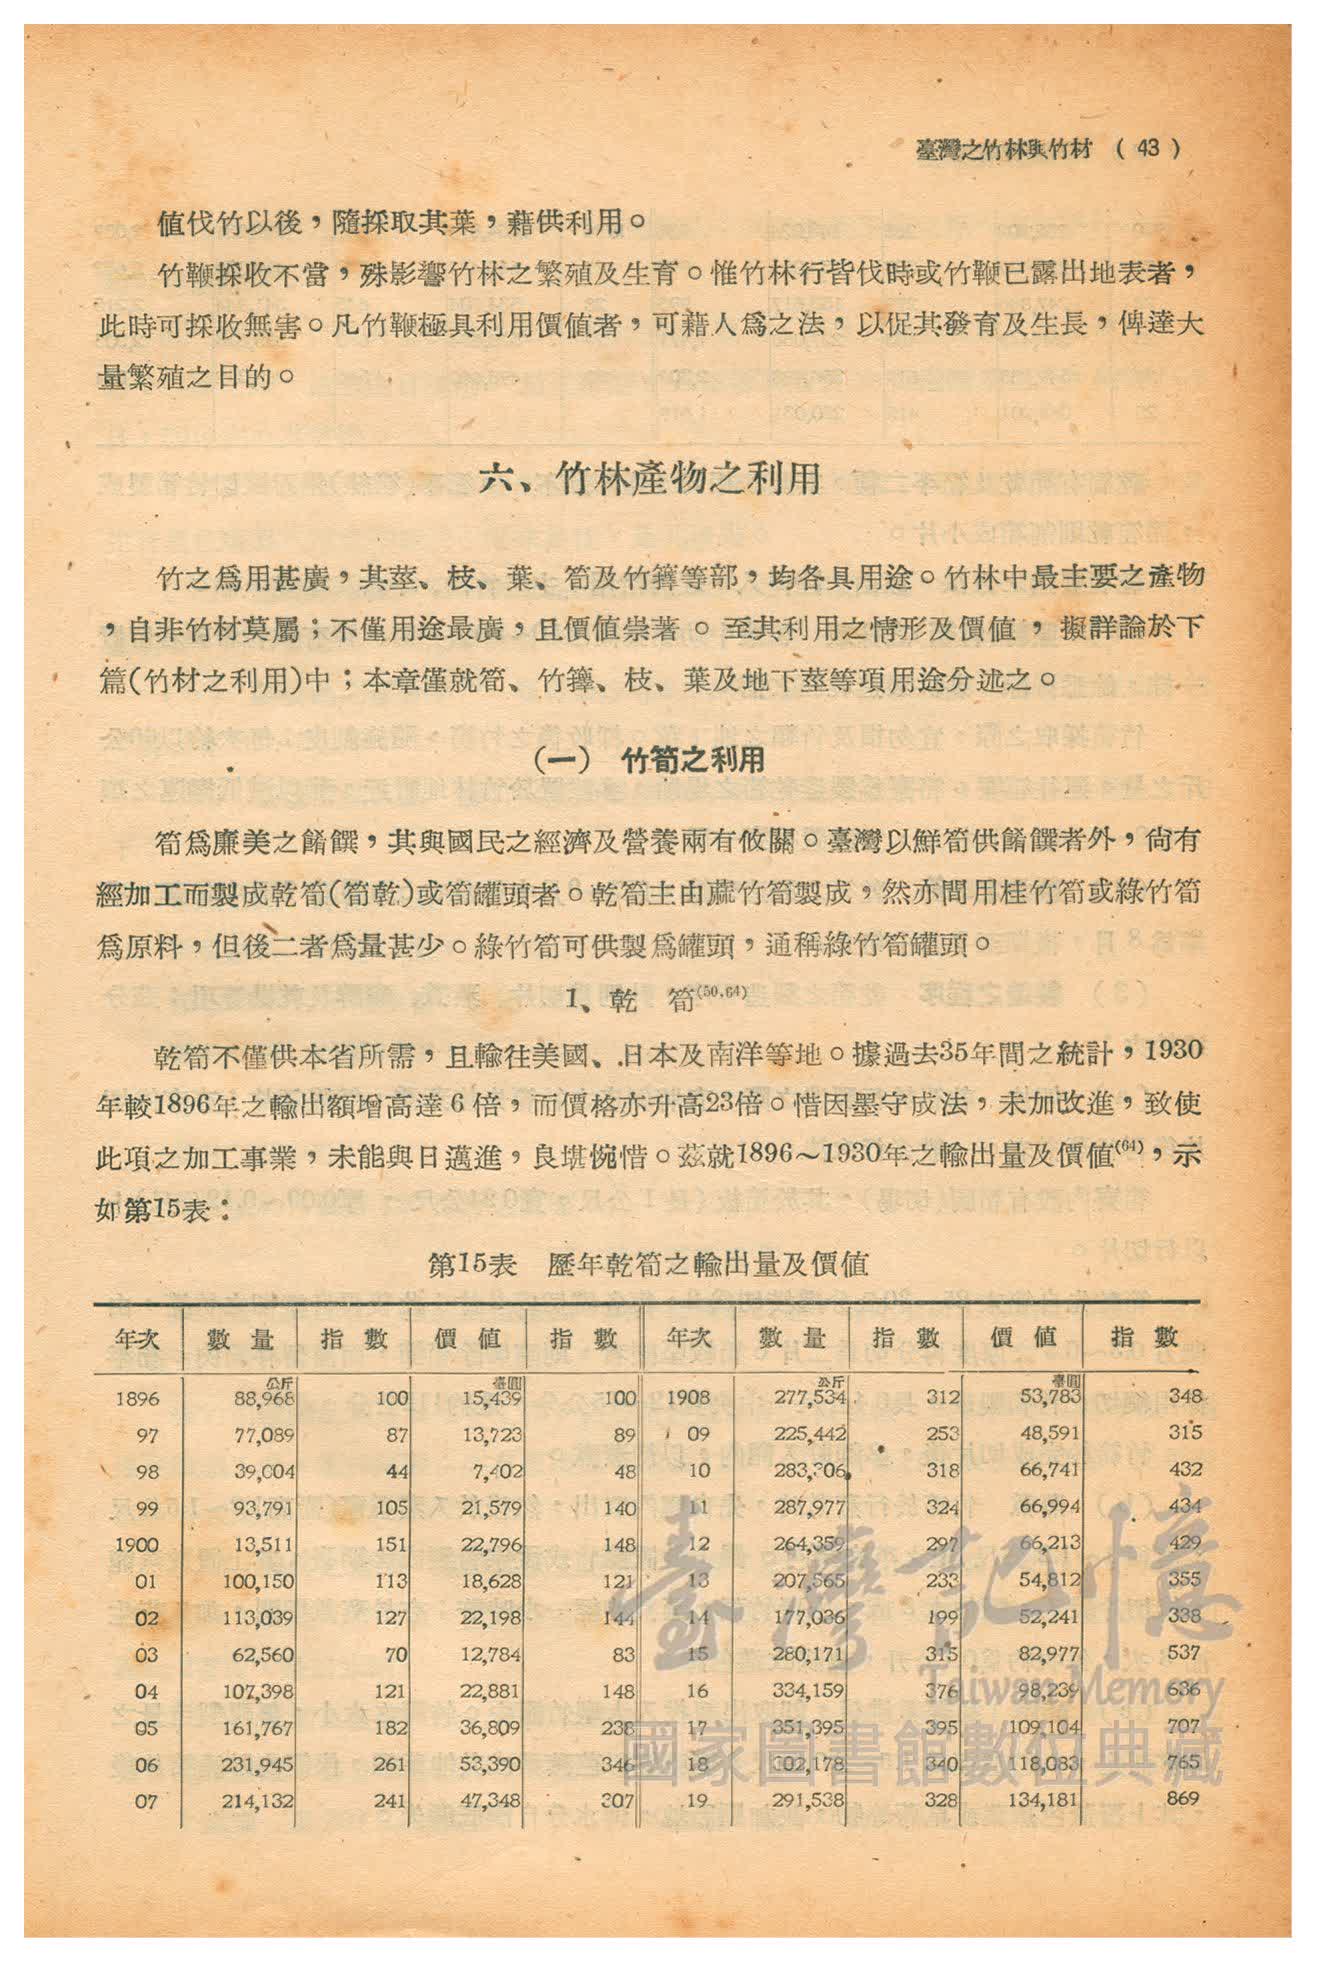 臺灣之竹林與竹材 ( 43 )
值伐竹以後，隨採取其葉，藉供利用。
竹鞭採收不當，殊影響竹林之繁殖及生育。惟竹林行皆伐時或竹鞭已露出地表者，
此時可採收無害。凡竹鞭極具利用價值者，可藉人爲之法，以促其發育及生長，俾達大
量繁殖之目的。
六、竹林產物之利用
竹之爲用甚廣，其莖、枝、葉、筍及竹籜等部，均各具用途。竹林中最主要之產物
，自非竹材莫屬；不僅用途最廣，且價值崇著。至其利用之情形及價値，擬詳論於下
篇(竹材之利用)中；本章僅就筍、竹籜、枝、葉及地下莖等項用途分述之。
(一) 竹筍之利用
筍爲廉美之餚饌，其與國民之經濟及營養兩有攸關。臺灣以鮮筍供餚饌者外，尙有
經加工而製成乾筍(筍乾)或筍罐頭者。乾筍主由蔴竹筍製成，然亦間用桂竹筍或綠竹筍
爲原料，但後二者爲量甚少。綠竹筍可供製爲罐頭，通稱綠竹筍罐頭。
1、乾 筍(50,64)
乾筍不僅供本省所需，且輸往美國、日本及南洋等地。據過去35年間之統計，1930
年較1896年之輸出額增高達6倍，而價格亦升高23倍。惜因墨守成法，未加改進，致使
此項之加工事業，未能與日邁進，良堪惋惜。茲就1896～1930年之輸出量及價值(64)，示
如第15表：
第15表 歷年乾筍之輸出量及價値
年次 數量 指數 價值 指數 年次 數量 指數 價值 指數
公斤 臺圓 公斤 臺圓
1896 88,968 100 15,439 100 1908 277,534 312 53,783 348
97 77,089 87 13,723 89 09 225,442 253 48,591 315
98 39,004 44 7,402 48 10 283,306 318 66,741 432
99 93,791 105 21,579 140 11 287,977 324 66,994 434
1900 13,511 151 22,796 148 12 264,359 297 66,213 429
01 100,150 113 18,628 121 13 207,565 233 54,812 355
02 113,039 127 22,198 144 14 177,036 199 52,241 338
03 62,560 70 12,784 83 15 280,171 315 82,977 537
04 107,398 121 22,881 148 16 334,159 376 98,239 636
05 161,767 182 36,809 238 17 351,395 395 109,104 707
06 231,945 261 53,390 346 18 302,178 340 118,083 765
07 214,132 241 47,348 307 19 291,538 328 134,181 869
臺灣記憶
Taiwan Memory
國家圖書館數位典藏